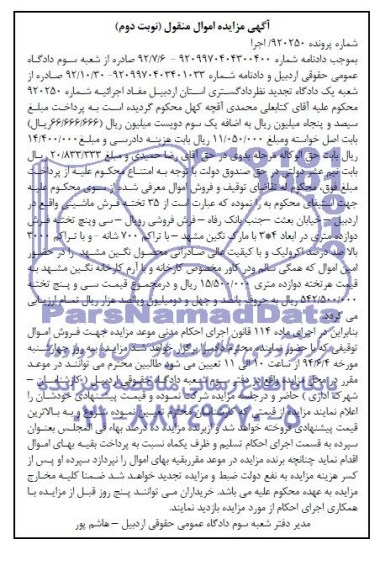 آگهی مزایده اموال منقول (نوبت دوم)
شماره پرونده ۹۲۰۲۵۰/ اجرا
بموجب دادنامه شماره ۹۲۰۹۹۷۰۴۰۴۳۰۰۴۰۰ - ۹۲/۷/۶ صادره از شعبه سوم دادگاه
عمومی حقوقی اردبیل و دادنامه شماره ۹۲۰۹۹۷۰۴۰۳۴۰۱۰۳۳-۹۲/۱۰/۳۰ صادره از
شعبه یک دادگاه تجدید نظردادگستری استان اردبیل مفاد اجرائیه شماره ۹۲۰۲۵۰
محکوم علیه آقای کتابعلی محمدی آقچه کهل محکوم گردیده است به پرداخت مبلغ
سیصد و پنجاه میلیون ریال به اضافه یک سوم دویست میلیون ریال (۶۶/۶۶۶/۶۶۶ریال)
بابت اصل خواسته ومبلغ ۱۱/۰۵۰/۰۰۰ ریال بابت هزینه دادرسی و مبلغ ۱۴/۴۰۰/۰۰۰
ریال بابت حق الوکاله مرحله بدوی در حق آقای رضا حمیدی و مبلغ ۲۰/۸۳۳/۳۳۳ ریال
بابت نیم عشر دولتی در حق صندوق دولت با توجه به امتناع محکوم علیه از پرداخت
مبلغ فوق، محکوم له تقاضای توقیف و فروش اموال معرفی شده از سوی محکوم علیه
جهت استیفای محکوم به را نموده که عبارت است از ۳۵ تخته فرش ماشینی واقع در
اردبیل - خیابان بعثت - جنب بانک رفاه - فرش فروشی رویال - سی وپنج تخته فرش
دوازده متری در ابعاد ۴*۳ با مارک نگین مشهد - با تراکم ۷۰۰ شانه - و با تراکم ۳۰۰۰
بالا صد درصد اکرولیک و با کیفیت عالی صادراتی محصول نگین مشهد را در حضور
امین اموال که همگی سالم ودر کاور مخصوص کارخانه و با آرم کارخانه نگین مشهد به
قیمت هرتخته دوازده متری ۱۵/۵۰۰/۰۰۰ ریال و درمجموع قیمت سی و پنج تخته
۵۴۲/۵۰۰/۰۰۰ ریال به حروف پانصد و چهل و دومیلیون وپانصد هزار ریال تمام ارزیابی
می گردد.
بنابراین در اجرای ماده ۱۱۴ قانون اجرای احکام مدنی موعد مزایده جهت فروش اموال
توقیفی که با حضور نماینده محترم دادسرا برگزار خواهد شد مزایده به روز چهارشنبه
مورخه ۹۴/۶/۴ از ساعت ۱۰ الی ۱۱ تعیین می شود طالبین محترم می توانند در موعد
مقرر در محل مزایده واقع در دفتر سوم شعبه دادگاه حقوقی اردبیل (کارشناسان -
شهرک اداری) حاضر و درجلسه مزایده شرکت نموده و قیمت پیشنهادی خودشان را
اعلام نمایند مزایده از قیمتی که کارشناسان محترم تعیین نموده شروع و به بالاترین
قیمت پیشنهادی فروخته خواهد شد و ازبرنده مزایده ده درصد بهاء فی المجلس بعنوان
سپرده به قسمت اجرای احکام تسلیم و ظرف یکماه نسبت به پرداخت بقیه بهای اموال
اقدام نماید چنانچه برنده مزایده در موعد مقرربقیه بهای اموال را نپردازد سپرده او پس از
کسر هزینه مزایده به نفع دولت ضبط و مزایده تجدید خواهد شد ضمنا کلیه مخارج
مزایده به عهده محکوم علیه می باشد. خریداران می توانند پنج روز قبل از مزایده با
همکاری اجرای احکام از مورد مزایده بازدید نمایند.
مدیر دفتر شعبه سوم دادگاه عمومی حقوقی اردبیل - هاشم پور
ParsNamadData